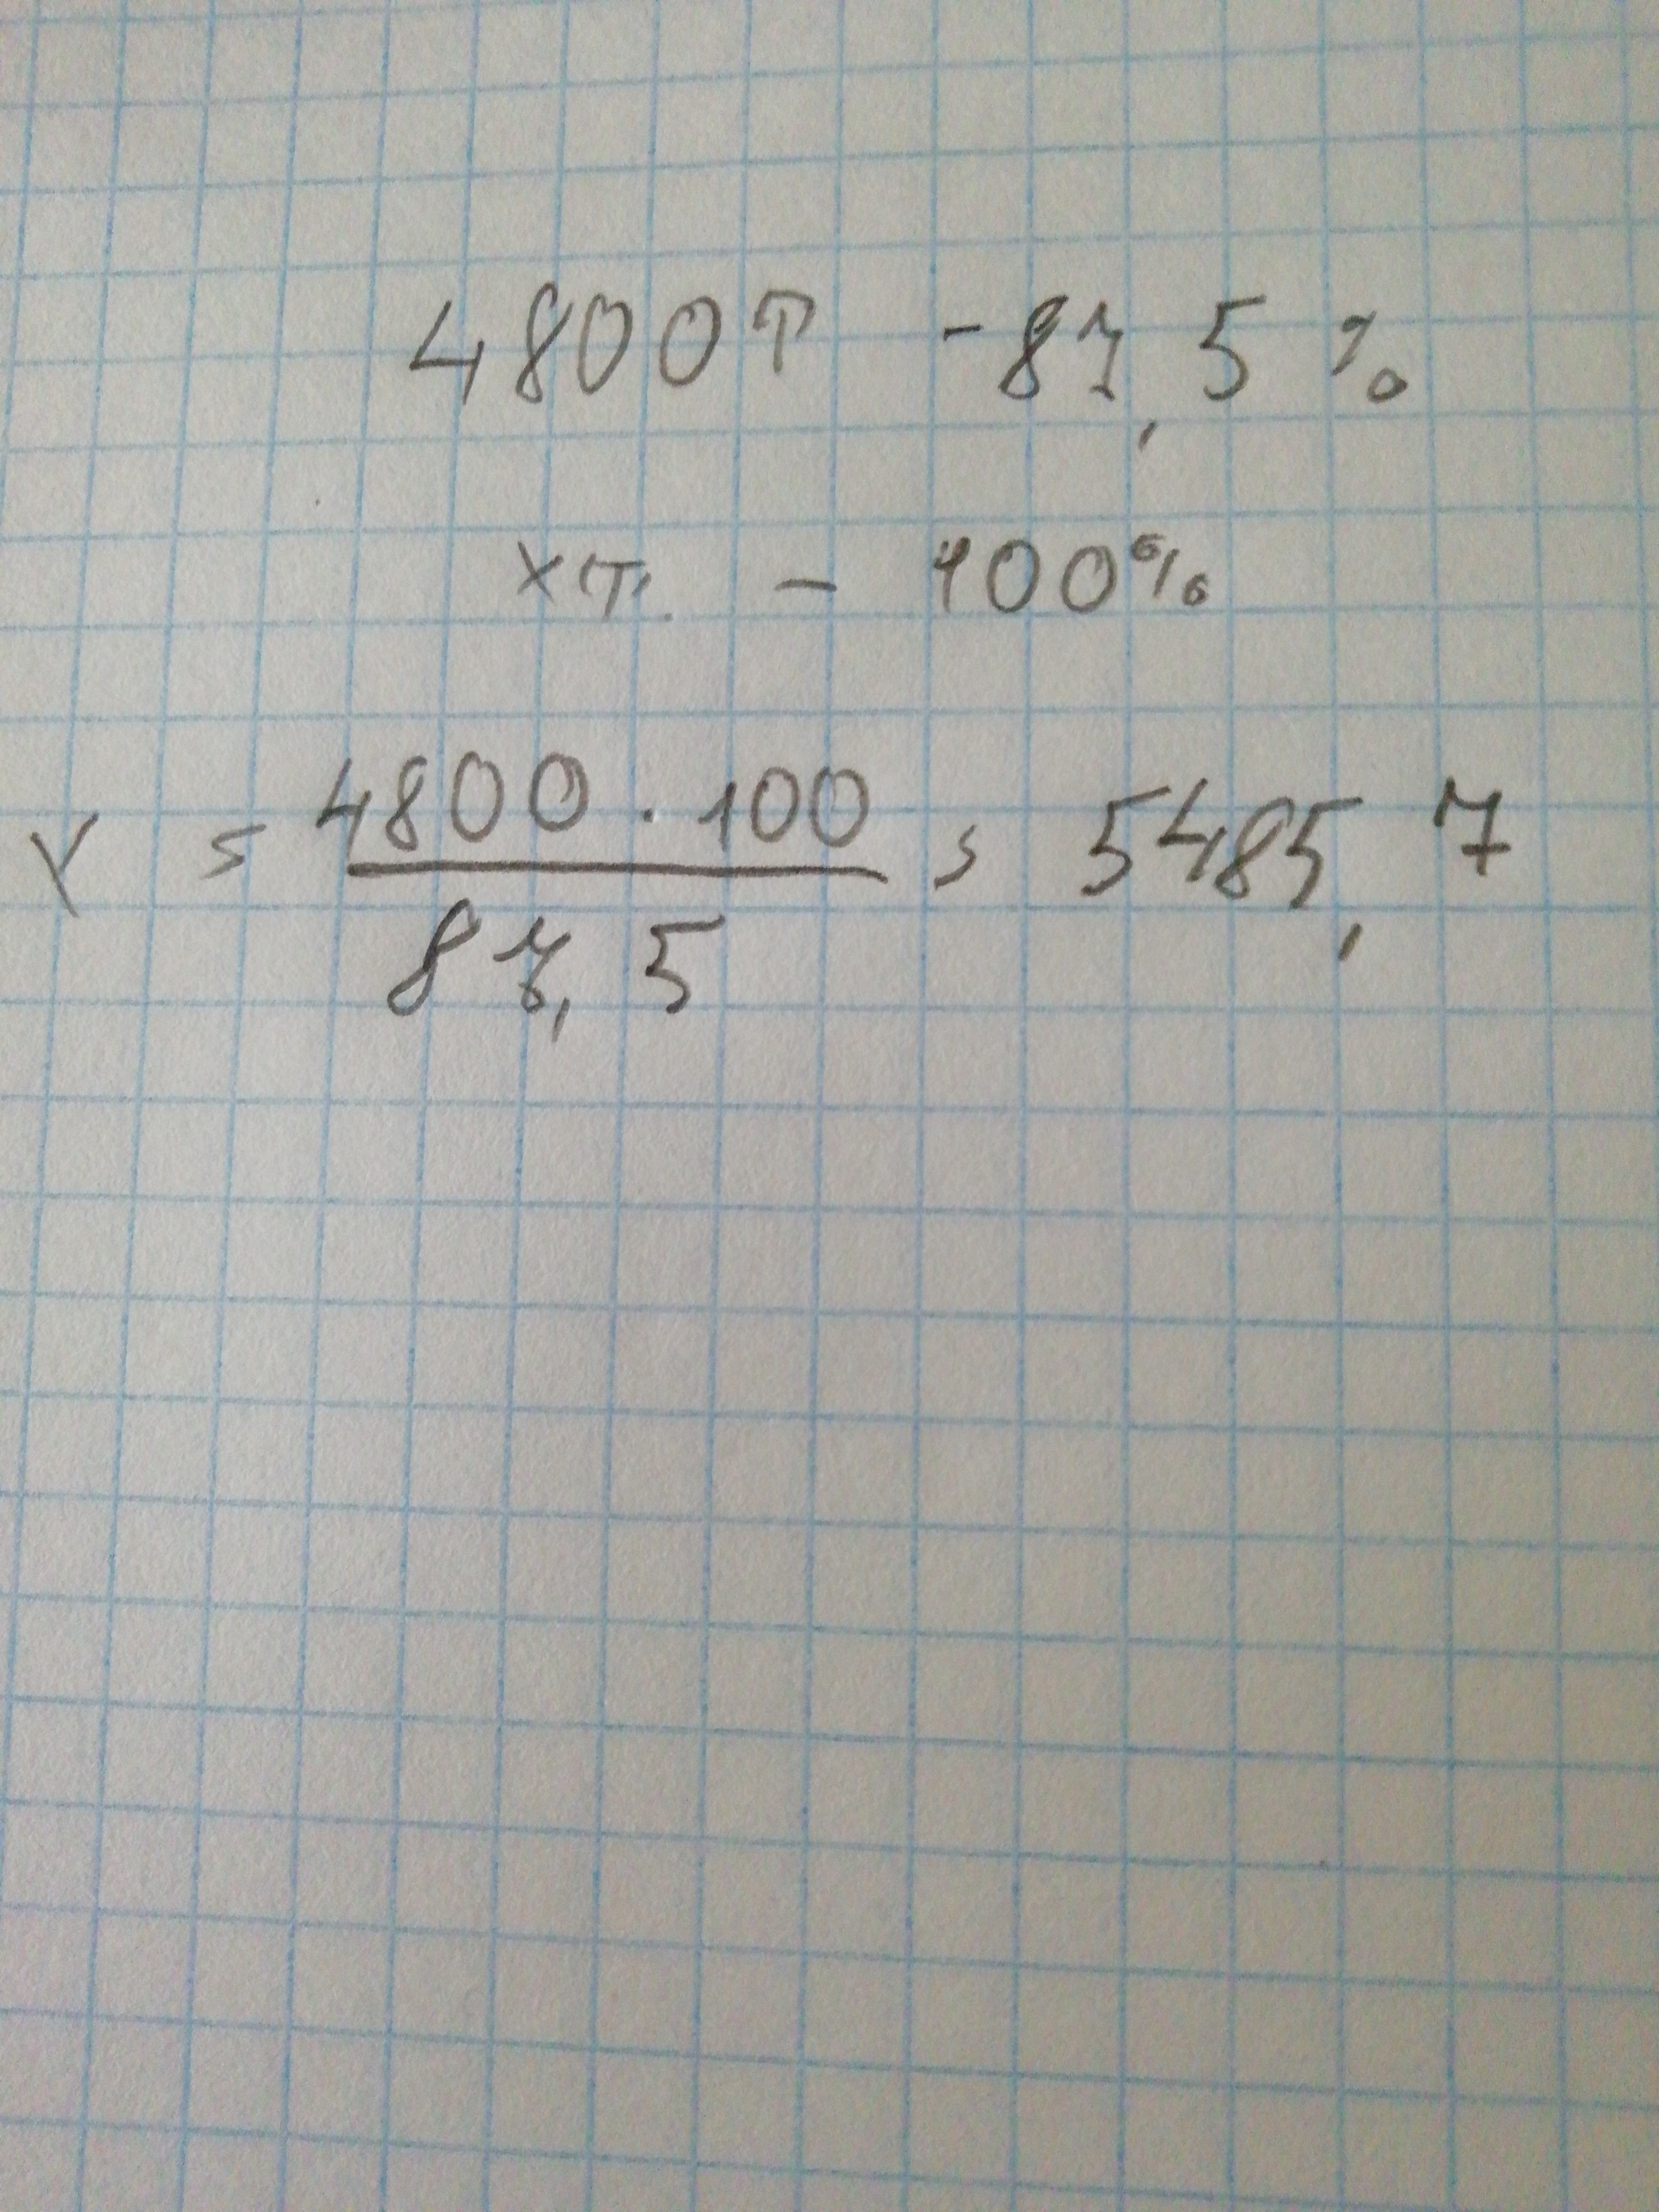 4800т - 87,5 %
хт. - 100%
х = 4800 · 100 / 87,5 = 5485,7